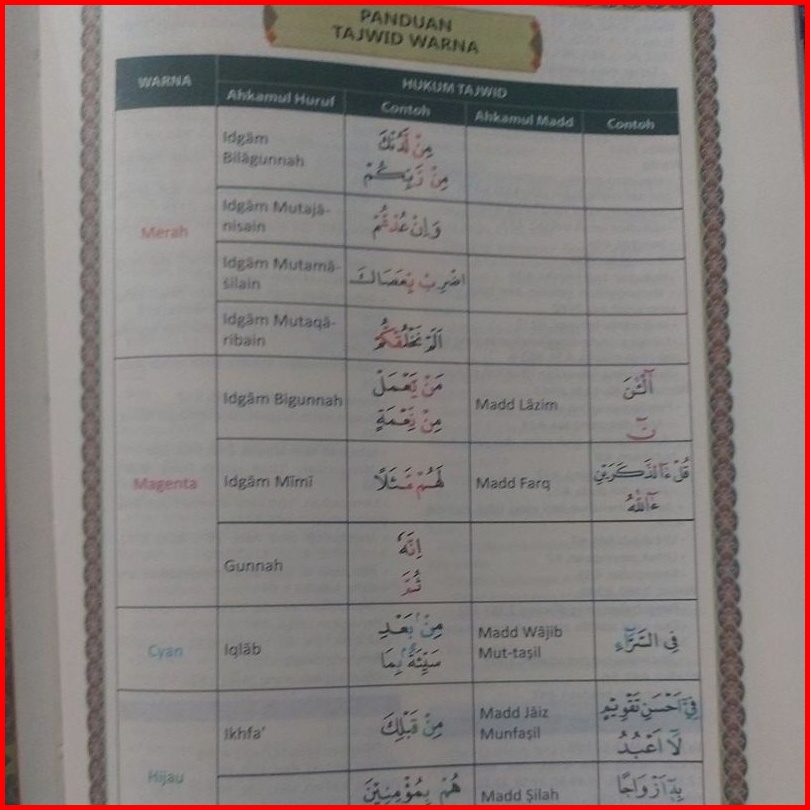 PANDUAN
TAJWID WARNA
WARNA
HUKUM TAJWID
Ahkamul Huruf
Contoh
Ahkamul Madd
Contoh
Merah
Idgām
Bilāgunnah
مِنْ لَدُنْكَ
مِنْ رَبِّكُمْ
Idgām Mutajā-
nisain
وَاِنْ عُدْتُّمْ
Idgām Mutamā-
ṡilain
اضْرِبْ بِّعَصَاكَ
Idgām Mutaqā-
ribain
اَلَمْ نَخْلُقْكُّمْ
Magenta
Idgām Bigunnah
مَنْ يَّعْمَلْ
مِنْ نِّعْمَةٍ
Madd Lāzim
آلْـٰٔنَ
نۤ
Idgām Mīmī
لَهُمْ مَّثَلًا
Madd Farq
قُلْ ءَاۤلذَّكَرَيْنِ
ءَاۤللّٰهُ
Gunnah
اِنَّهٗ
ثُمَّ
Cyan
Iqlāb
مِنْۢ بَعْدِ
سَيِّئَةً ۢبِمَا
Madd Wājib
Mut-taṣil
فِى السَّرَّاۤءِ
Hijau
Ikhfa'
مِنْ قَبْلِكَ
Madd Jāiz
Munfaṣil
فِيْٓ اَحْسَنِ تَقْوِيْمٍ
لَآ اَعْبُدُ
هُمْ بِمُؤْمِنِيْنَ
Madd Ṣilah
بِهٖٓ اَزْوَاجًا